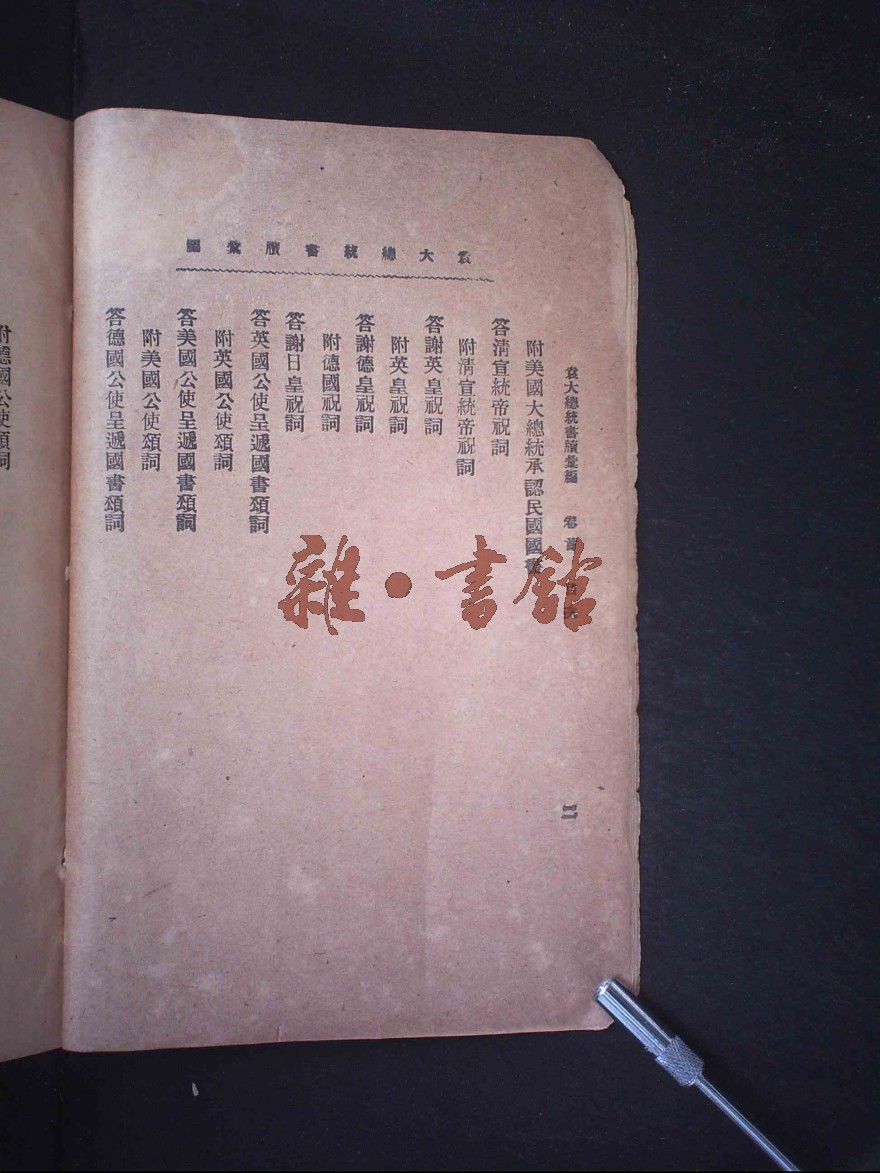 袁大總統書牘彙編
袁大總統書牘彙編 卷首 目錄 二
附美國大總統承認民國國書
答清宣統帝祝詞
附清宣統帝祝詞
答謝英皇祝詞
附英皇祝詞
答謝德皇祝詞
附德國祝詞
答謝日皇祝詞
答英國公使呈遞國書頌詞
附英國公使頌詞
答美國公使呈遞國書頌詞
附美國公使頌詞
答德國公使呈遞國書頌詞
附德國公使頌詞
雜·書館